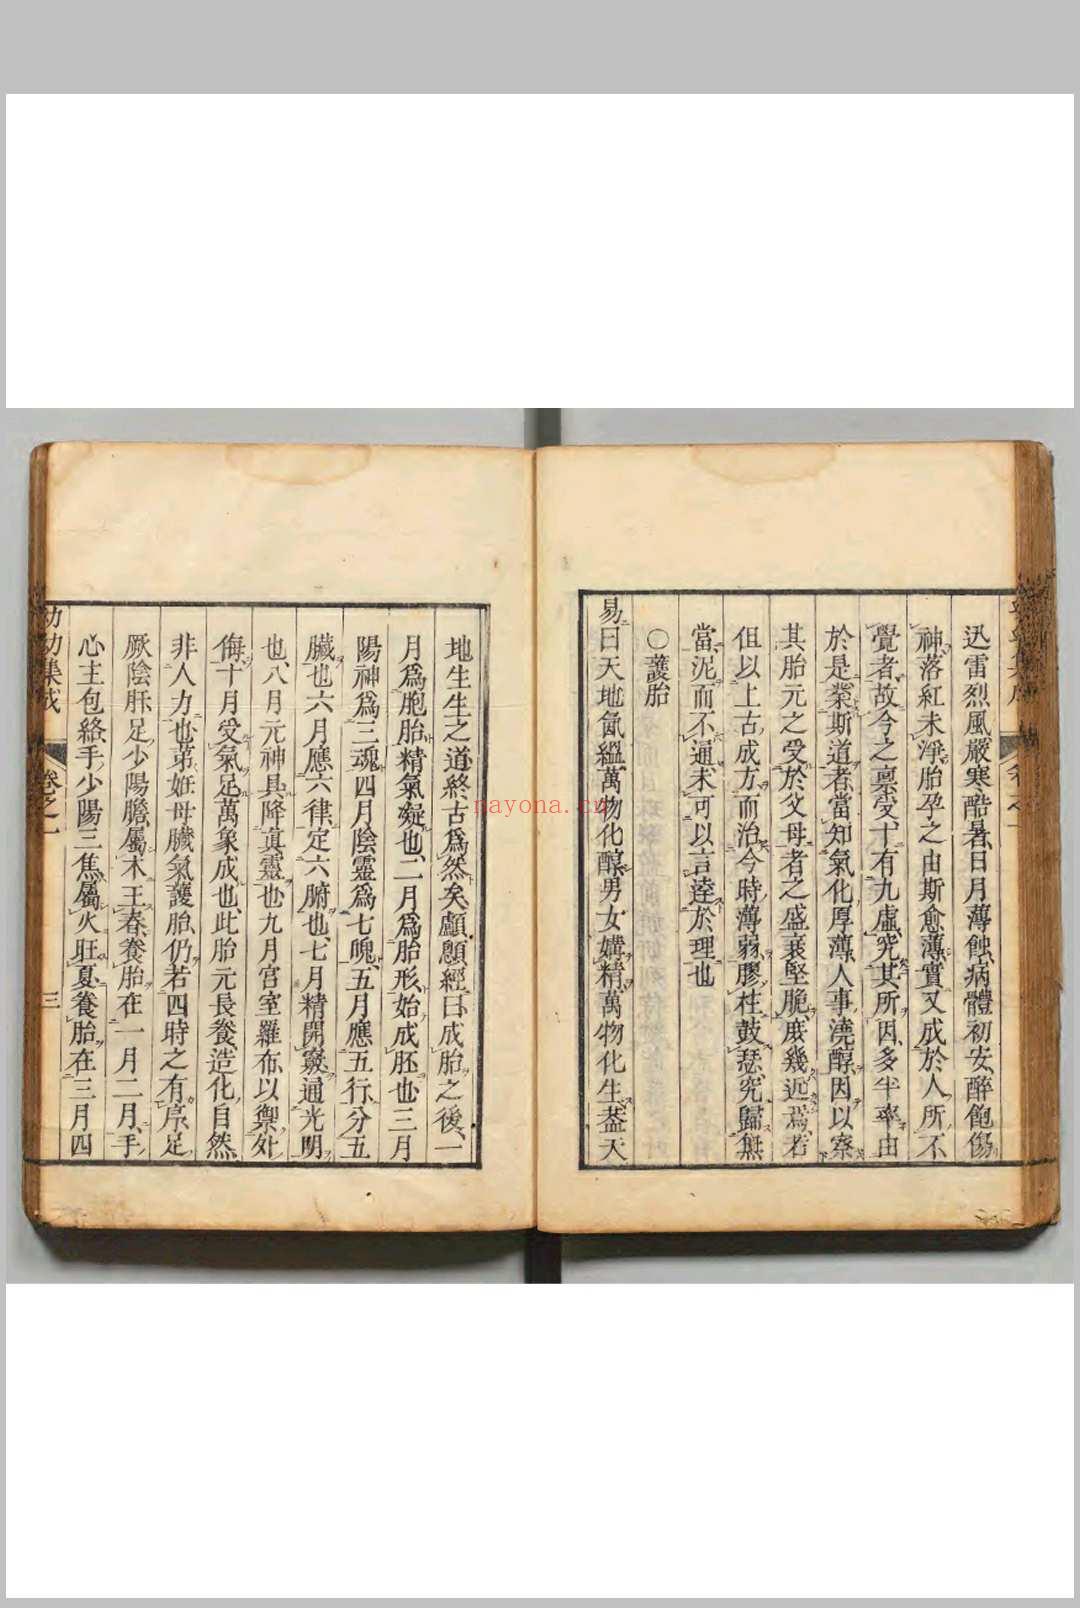 迅雷烈風嚴寒酷暑日月薄蝕病體初安醉飽傷
神落紅未淨胎孕之由斯愈薄實又成於人所不
覺者故今之禀受十有九虛究其所因多半率由
於是業斯道者當知氣化厚薄人事澆醇因以察
其胎元之受於父母者之盛衰堅脆庶幾近焉若
但以上古成方而治今時薄弱膠柱鼓瑟究歸無
當泥而不通未可以言達於理也
○護胎
易曰天地氤縕萬物化醇男女媾精萬物化生蓋天
地生生之道終古爲然矣顱顖經曰成胎之後一
月爲胞胎精氣凝也二月爲胎形始成胚也三月
陽神爲三魂四月陰靈爲七魄五月應五行分五
臟也六月應六律定六腑也七月精開竅通光明
也八月元神具降眞靈也九月宮室羅布以禦外
侮十月受氣足萬象成也此胎元長養造化自然
非人力也苐姙母臟氣護胎仍若四時之有序足
厥陰肝足少陽膽屬木王春養胎在一月二月手
心主包絡手少陽三焦屬火旺夏養胎在三月四
幼幼集成 卷之一 三
nayona.cn